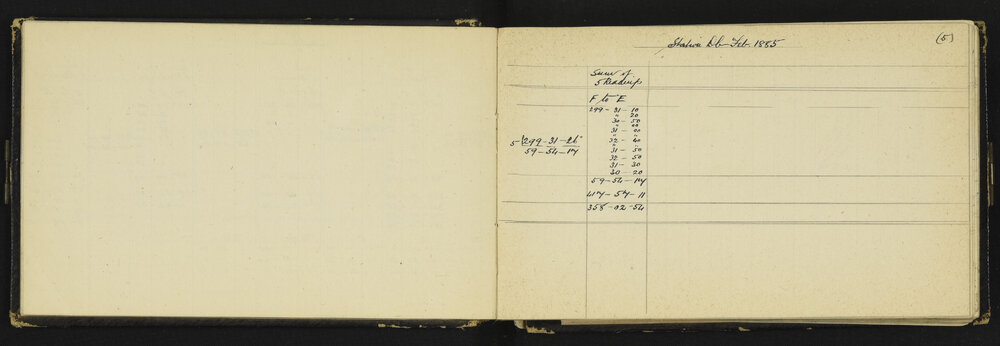 (5)
Station Db Feb. 1885
Sum of
5 Readings
F to E
299 - 31 - 10
" 20
30 - 50
" 00
31 - 00
" "
32 - 40
" "
31 - 50
32 - 50
31 - 30
30 - 20
5 299 - 31 - 26
59 - 54 - 17
59 - 54 - 17
417 - 57 - 11
358 - 02 - 54